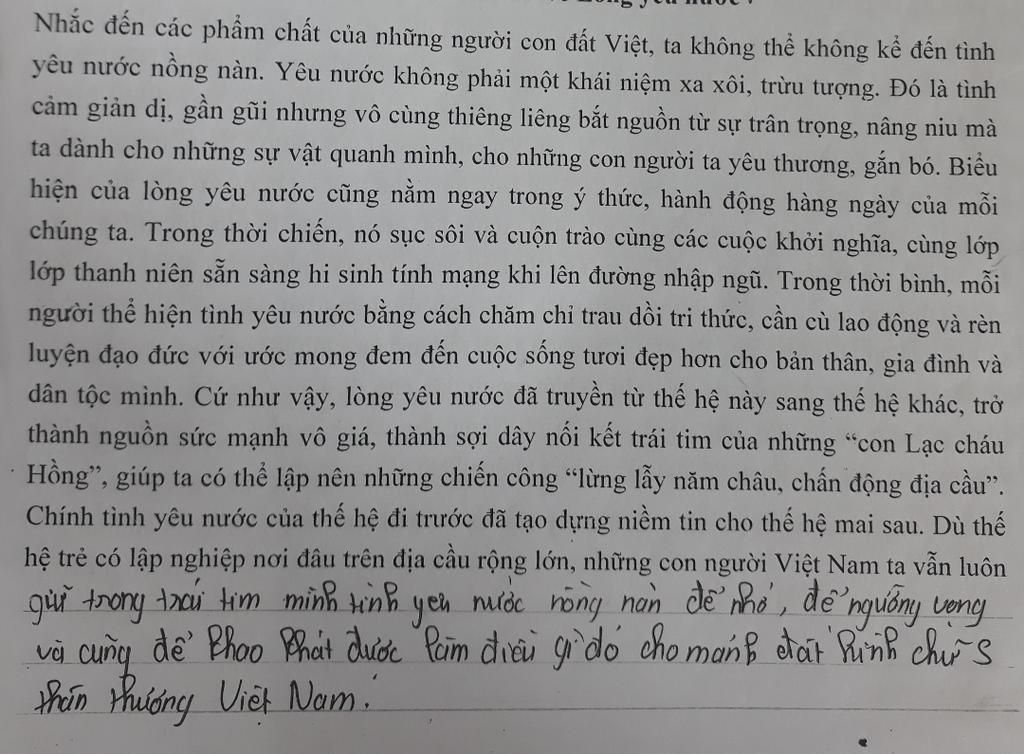 lòng yêu nước ?
Nhắc đến các phẩm chất của những người con đất Việt, ta không thể không kể đến tình
yêu nước nồng nàn. Yêu nước không phải một khái niệm xa xôi, trừu tượng. Đó là tình
cảm giản dị, gần gũi nhưng vô cùng thiêng liêng bắt nguồn từ sự trân trọng, nâng niu mà
ta dành cho những sự vật quanh mình, cho những con người ta yêu thương, gắn bó. Biểu
hiện của lòng yêu nước cũng nằm ngay trong ý thức, hành động hàng ngày của mỗi
chúng ta. Trong thời chiến, nó sục sôi và cuộn trào cùng các cuộc khởi nghĩa, cùng lớp
lớp thanh niên sẵn sàng hi sinh tính mạng khi lên đường nhập ngũ. Trong thời bình, mỗi
người thể hiện tình yêu nước bằng cách chăm chỉ trau dồi tri thức, cần cù lao động và rèn
luyện đạo đức với ước mong đem đến cuộc sống tươi đẹp hơn cho bản thân, gia đình và
dân tộc mình. Cứ như vậy, lòng yêu nước đã truyền từ thế hệ này sang thế hệ khác, trở
thành nguồn sức mạnh vô giá, thành sợi dây nối kết trái tim của những “con Lạc cháu
Hồng”, giúp ta có thể lập nên những chiến công “lừng lẫy năm châu, chấn động địa cầu”.
Chính tình yêu nước của thế hệ đi trước đã tạo dựng niềm tin cho thế hệ mai sau. Dù thế
hệ trẻ có lập nghiệp nơi đâu trên địa cầu rộng lớn, những con người Việt Nam ta vẫn luôn
giữ trong trái tim mình tình yêu nước nồng nàn để nhớ, để ngưỡng vọng
và cũng để khao khát được làm điều gì đó cho mảnh đất hình chữ S
thân thương Việt Nam.